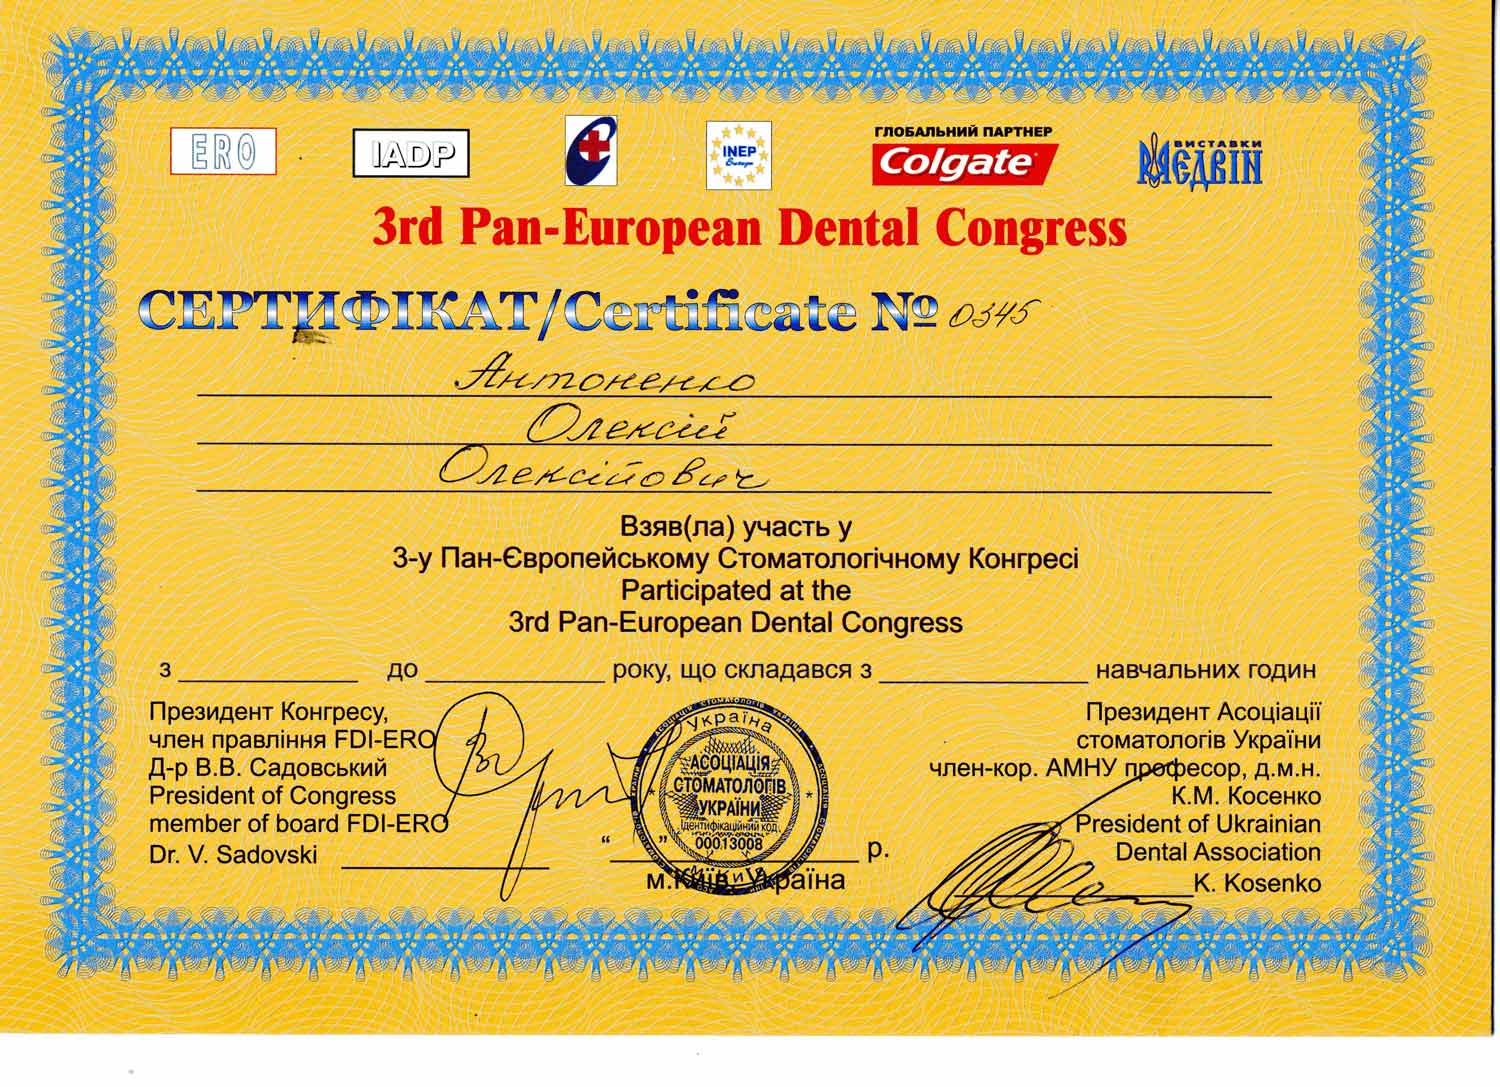 ERO
IADP
INEP
ГЛОБАЛЬНИЙ ПАРТНЕР
Colgate
ВИСТАВКИ
МЕДВІН
3rd Pan-European Dental Congress
СЕРТИФІКАТ/Certificate № 0345
Антоненко
Олексій
Олексійович
Взяв(ла) участь у
3-у Пан-Європейському Стоматологічному Конгресі
Participated at the
3rd Pan-European Dental Congress
з ____________ до ____________ року, що складався з ______________ навчальних годин
Президент Конгресу,
член правління FDI-ERO
Д-р В.В. Садовський
President of Congress
member of board FDI-ERO
Dr. V. Sadovski
Україна
АСОЦІАЦІЯ
СТОМАТОЛОГІВ
УКРАЇНИ
Ідентифікаційний код
00013008
м.Київ
“ ” р.
м.Київ, Україна
Президент Асоціації
стоматологів України
член-кор. АМНУ професор, д.м.н.
К.М. Косенко
President of Ukrainian
Dental Association
K. Kosenko